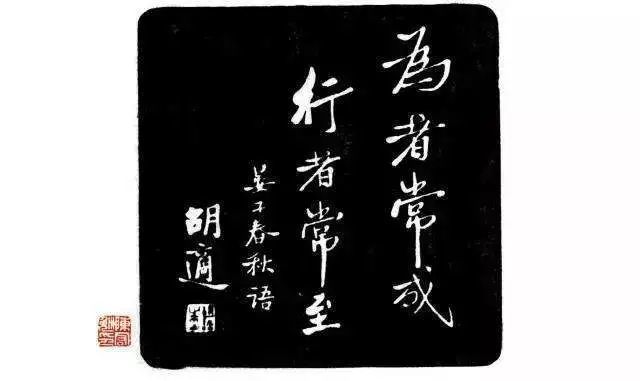 為者常成
行者常至
晏子春秋語
胡適